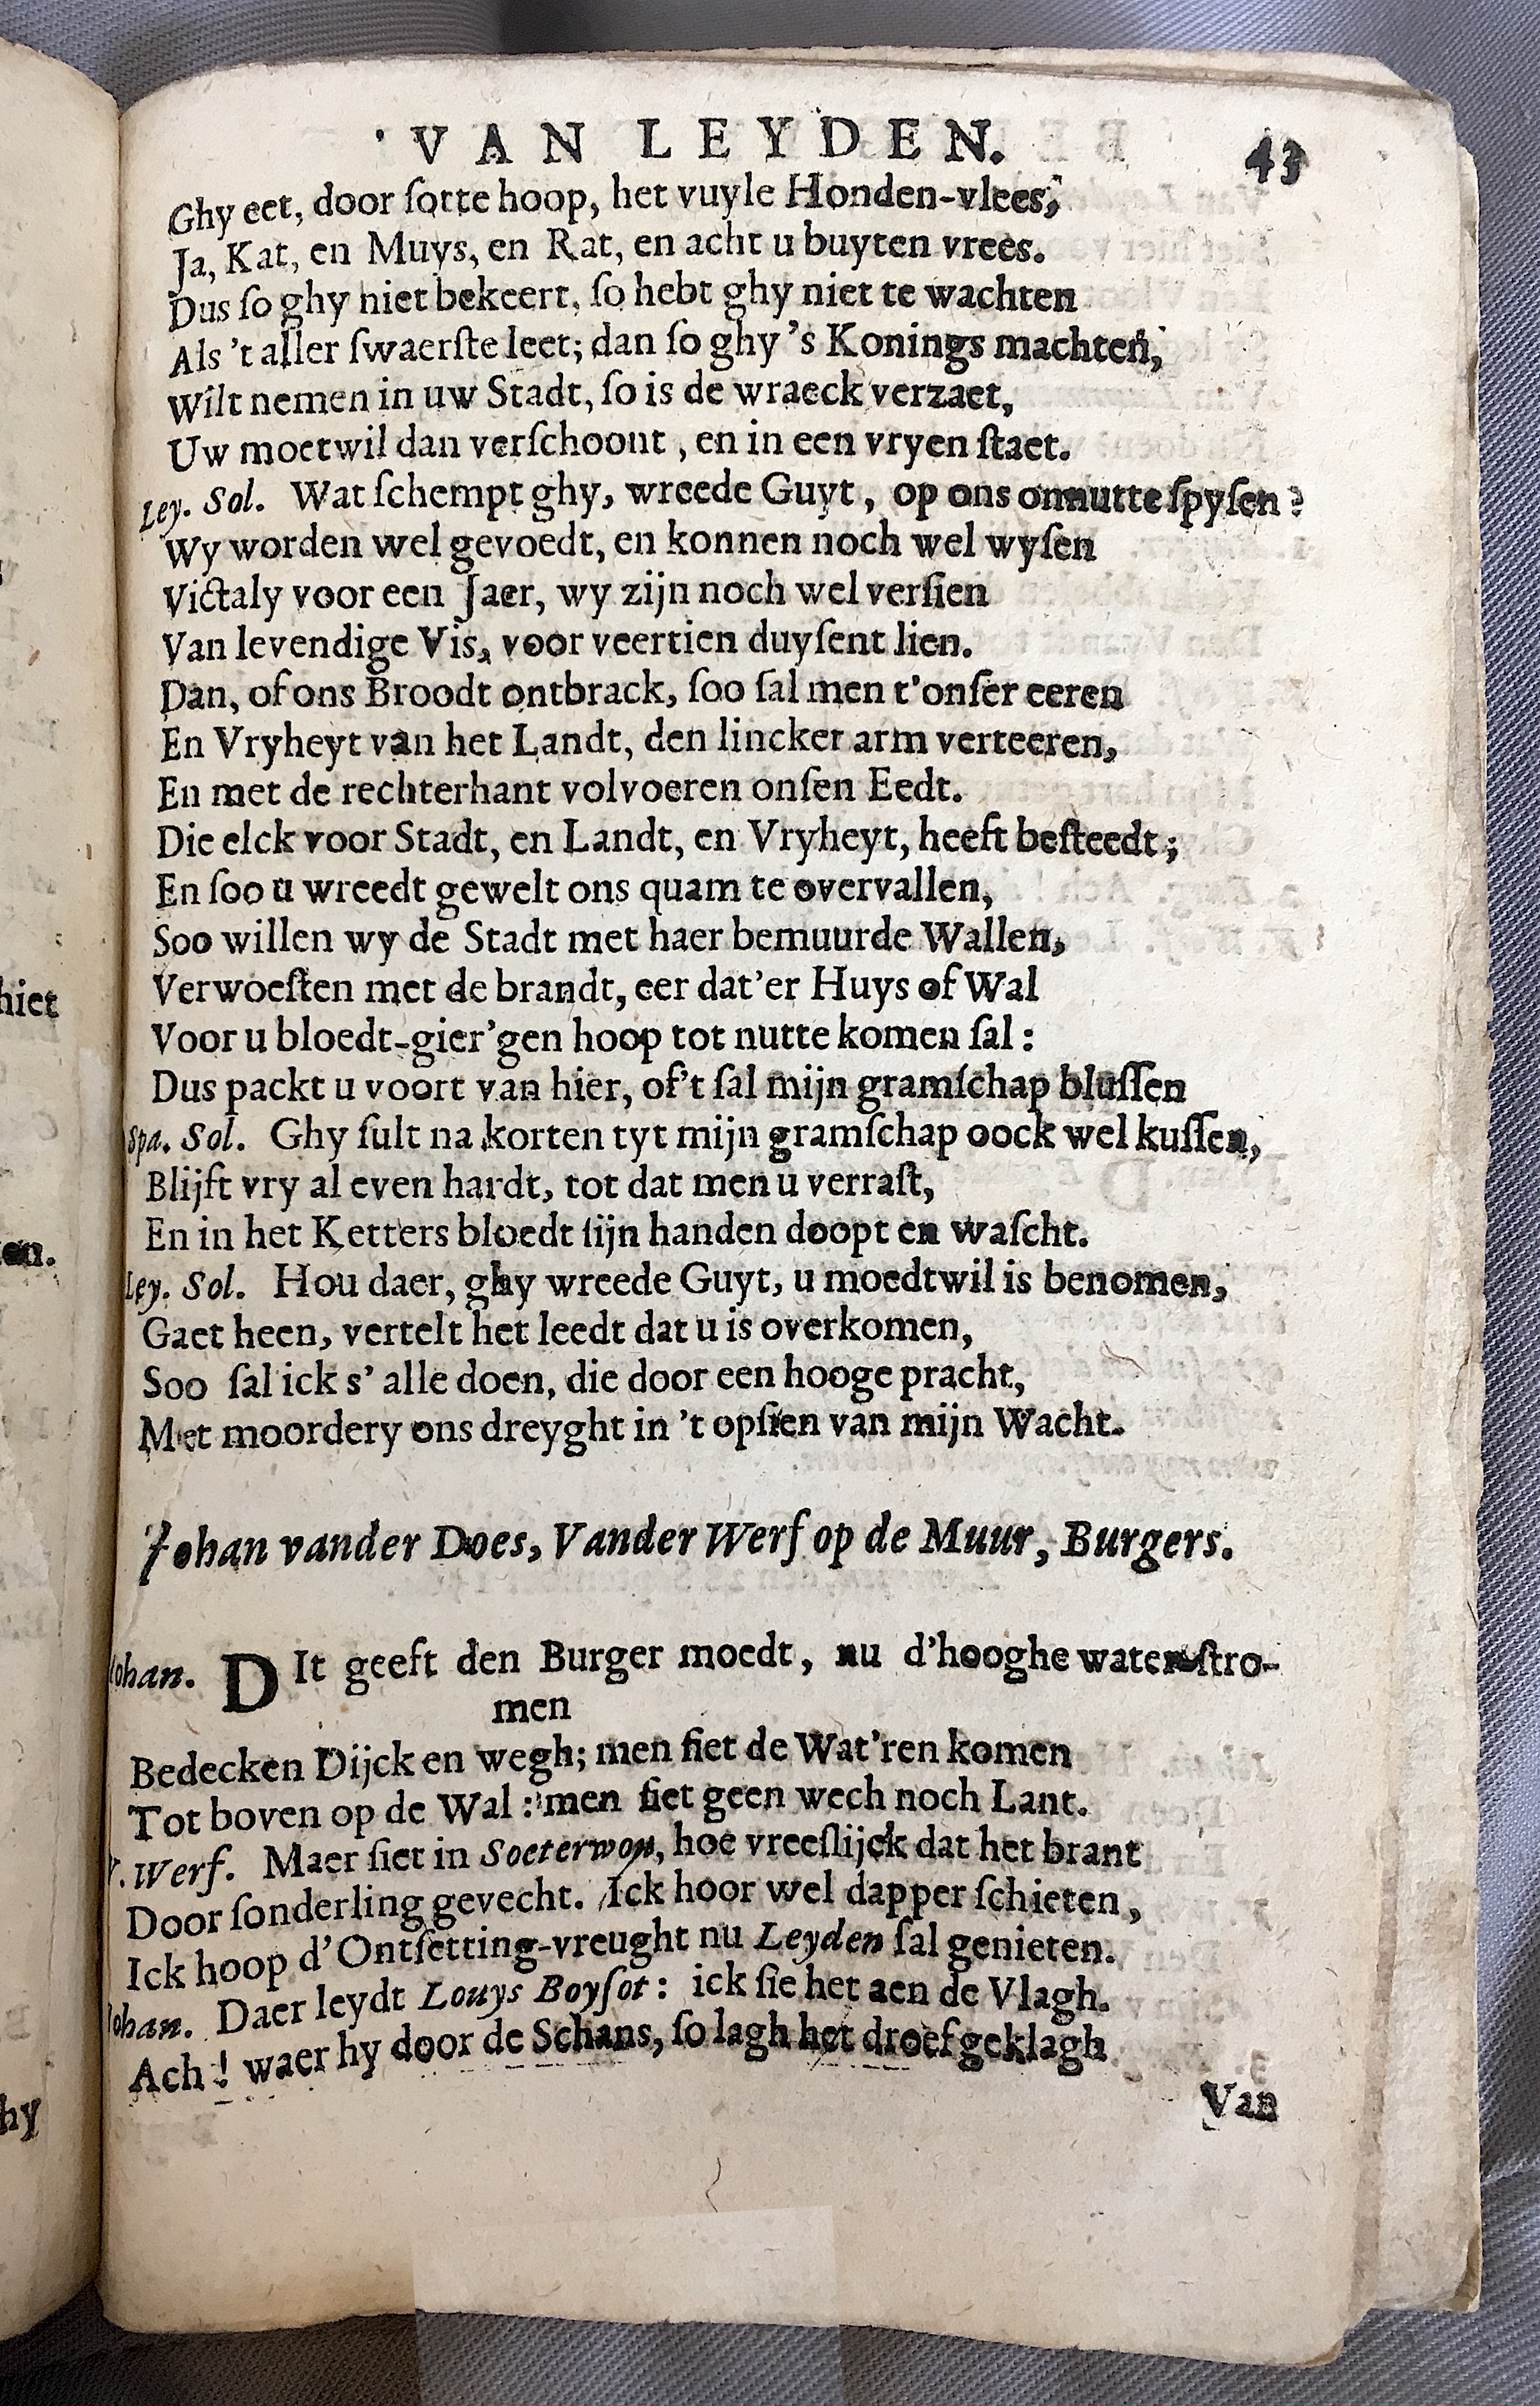 VAN LEYDEN. 43
Ghy eet, door ſotte hoop, het vuyle Honden-vlees,
Ja, Kat, en Muys, en Rat, en acht u buyten vrees.
Dus ſo ghy niet bekeert, ſo hebt ghy niet te wachten
Als 't aller ſwaerſte leet; dan ſo ghy 's Konings machten,
Wilt nemen in uw Stadt, ſo is de wraeck verzaet,
Uw moetwil dan verſchoont, en in een vryen ſtaet.
Ley. Sol. Wat ſchempt ghy, wreede Guyt, op ons onnutte ſpyſen?
Wy worden wel gevoedt, en konnen noch wel wyſen
Victaly voor een Jaer, wy zijn noch wel verſien
Van levendige Vis, voor veertien duyſent lien.
Dan, of ons Broodt ontbrack, ſoo ſal men t'onſer eeren
En Vryheyt van het Landt, den lincker arm verteeren,
En met de rechterhant volvoeren onſen Eedt.
Die elck voor Stadt, en Landt, en Vryheyt, heeft beſteedt;
En ſoo u wreedt gewelt ons quam te overvallen,
Soo willen wy de Stadt met haer bemuurde Wallen,
Verwoeſten met de brandt, eer dat'er Huys of Wal
Voor u bloedt-gier'gen hoop tot nutte komen ſal:
Dus packt u voort van hier, of't ſal mijn gramſchap bluſſen
Spa. Sol. Ghy ſult na korten tyt mijn gramſchap oock wel kuſſen,
Blijft vry al even hardt, tot dat men u verraſt,
En in het Ketters bloedt ſijn handen doopt en waſcht.
Ley. Sol. Hou daer, ghy wreede Guyt, u moedtwil is benomen,
Gaet heen, vertelt het leedt dat u is overkomen,
Soo ſal ick s' alle doen, die door een hooge pracht,
Met moordery ons dreyght in 't opſien van mijn Wacht.
Johan vander Does, Vander Werf op de Muur, Burgers.
Johan. DIt geeft den Burger moedt, nu d'hooghe water-ſtro-
men
Bedecken Dijck en wegh; men ſiet de Wat'ren komen
Tot boven op de Wal: men ſiet geen wech noch Lant.
V. Werf. Maer ſiet in Soeterwou, hoe vreeſlijck dat het brant
Door ſonderling gevecht. Ick hoor wel dapper ſchieten,
Ick hoop d'Ontſetting-vreught nu Leyden ſal genieten.
Johan. Daer leydt Louys Boyſot: ick ſie het aen de Vlagh.
Ach! waer hy door de Schans, ſo lagh het droef geklagh
Van
hiet
en.
hy